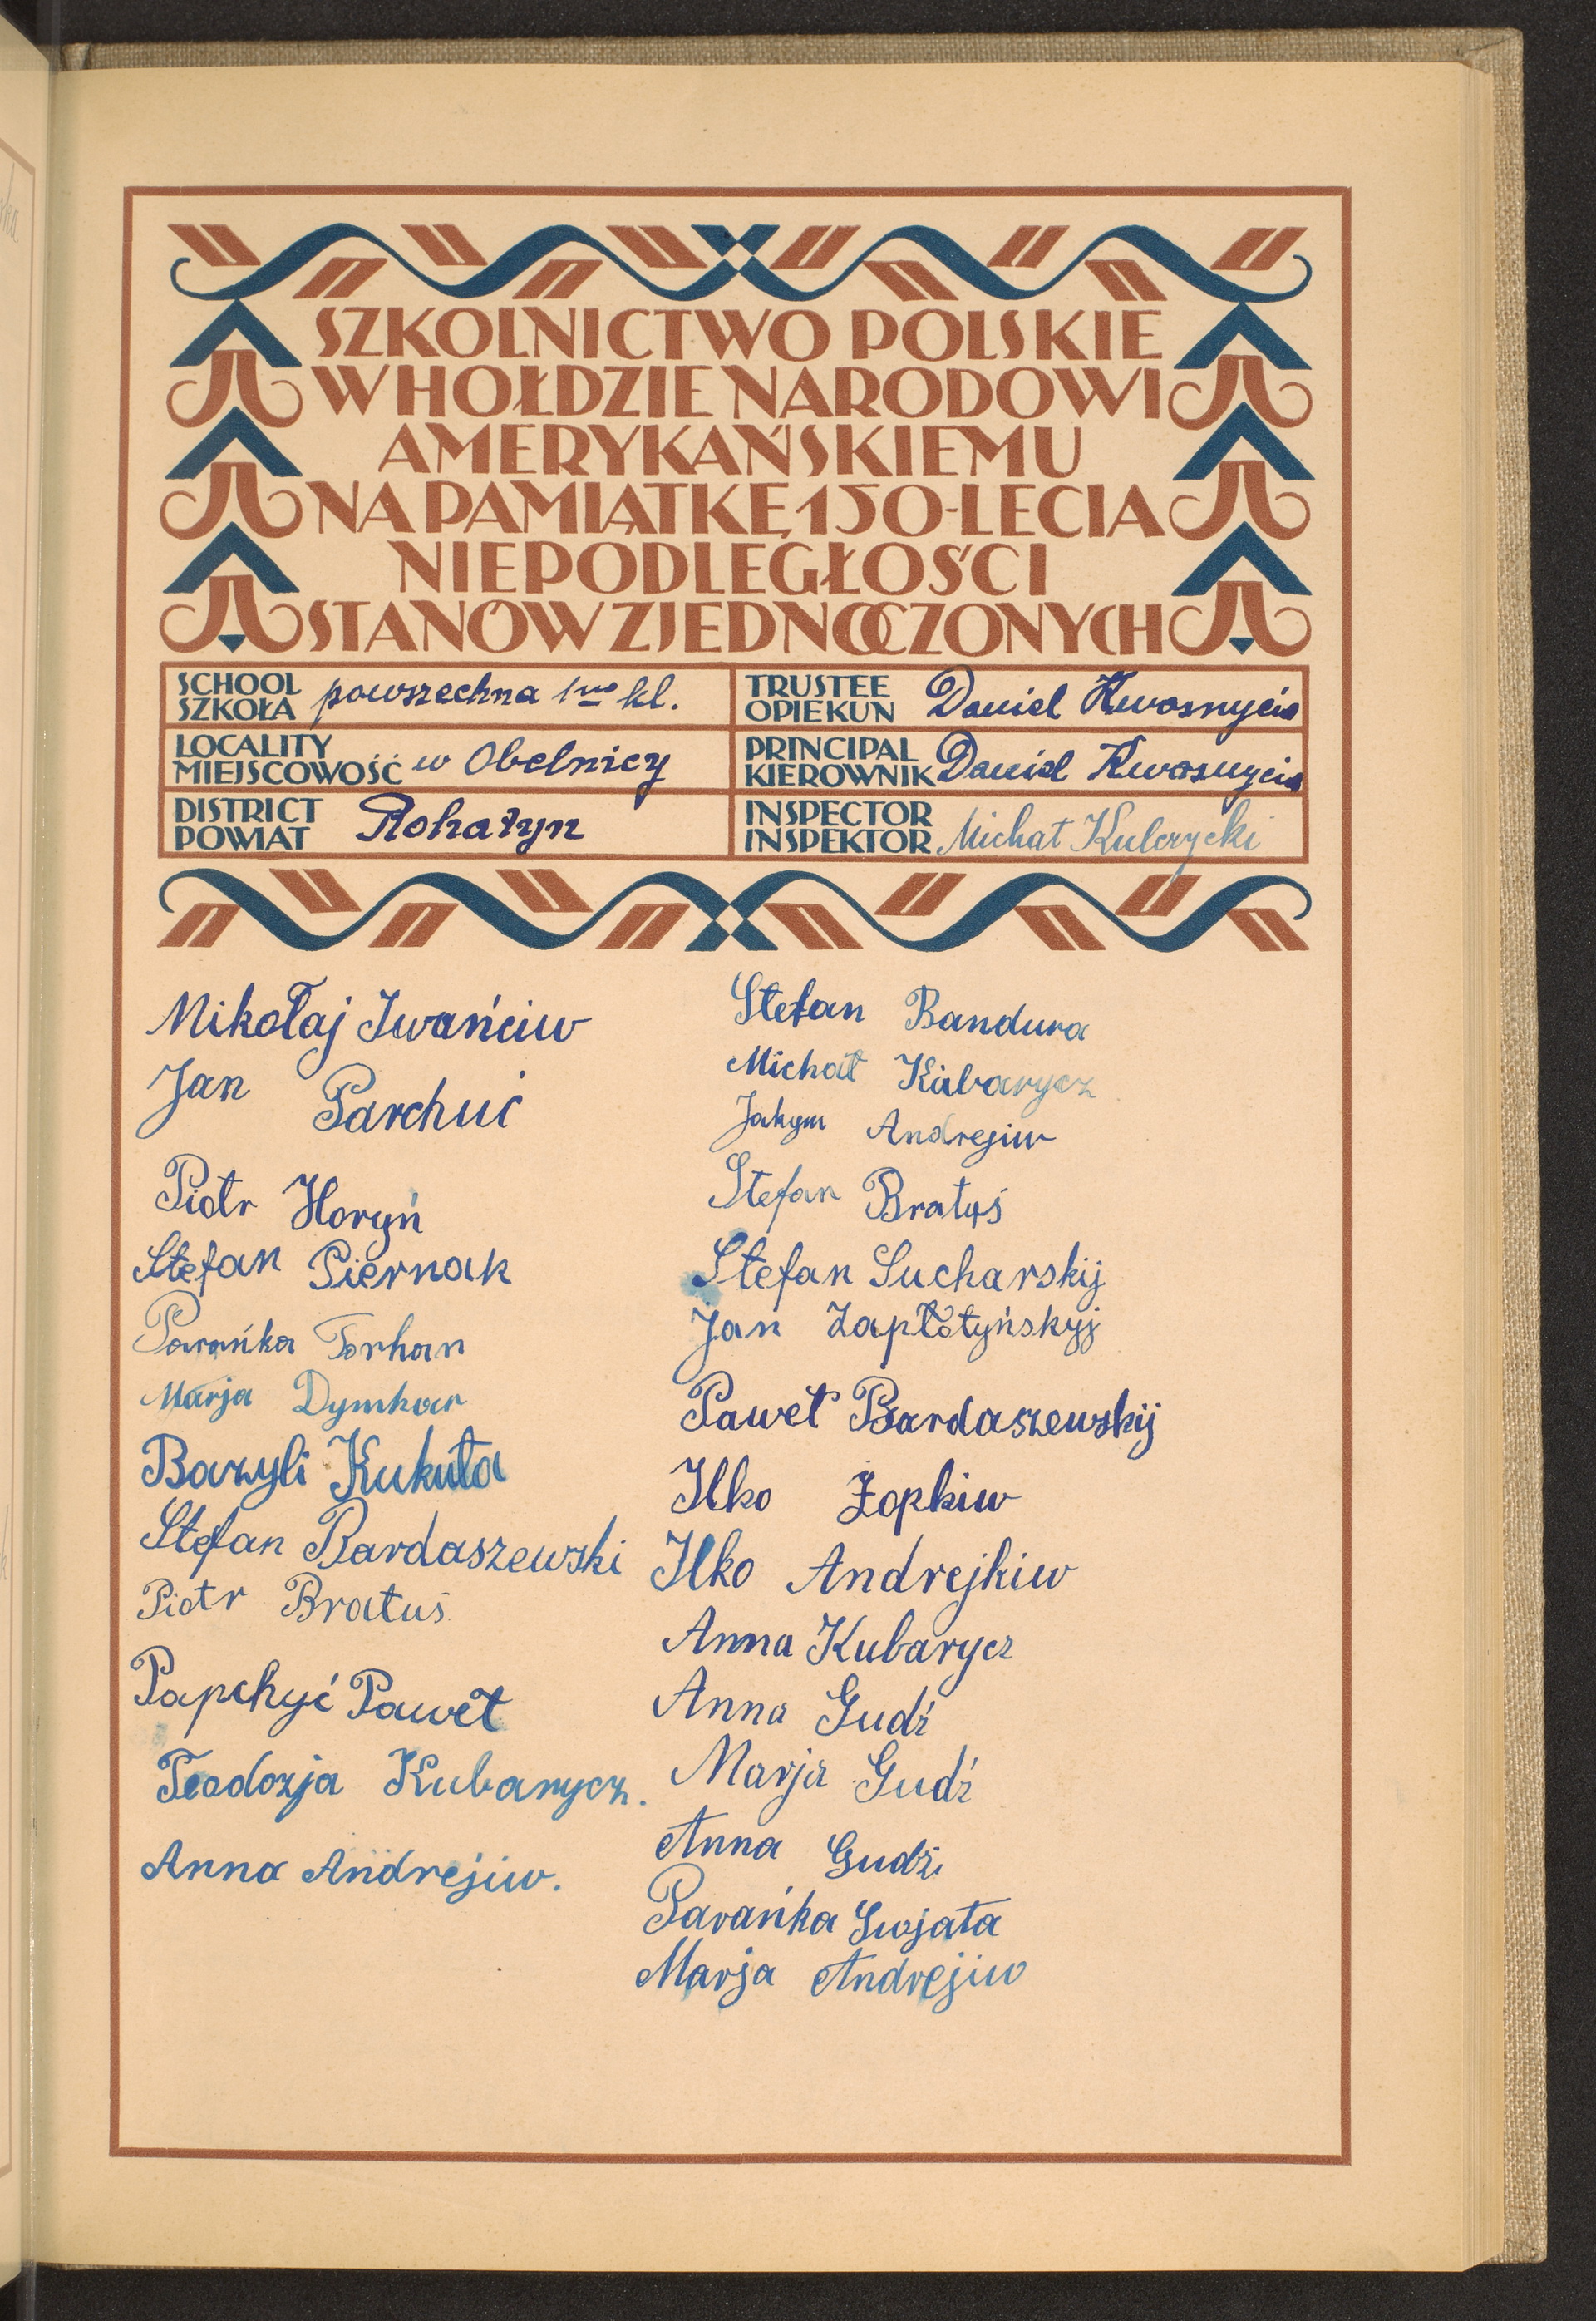 SZKOLNICTWO POLSKIE
W HOŁDZIE NARODOWI
AMERYKAŃSKIEMU
NA PAMIĄTKĘ 150-LECIA
NIEPODLEGŁOŚCI
STANÓW ZJEDNOCZONYCH
SCHOOL
SZKOŁA powszechna 1no kl.
LOCALITY
MIEJSCOWOŚĆ w Obelnicy
DISTRICT
POWIAT Rohatyn
TRUSTEE
OPIEKUN Daniel Kwasnycia
PRINCIPAL
KIEROWNIK Daniel Kwasnycia
INSPECTOR
INSPEKTOR Michał Kulczycki
Mikołaj Iwańciw
Jan Parchuć
Piotr Horyń
Stefan Piernak
Parańka Torhan
Marja Dymkar
Bazyli Kukuła
Stefan Bardaszewski
Piotr Bratuś
Papchyć Paweł
Teodozja Kubarycz.
Anna Andrejiw.
Stefan Bandura
Michał Kubarycz
Jakym Andrejiw
Stefan Bratyś
Stefan Sucharskij
Jan Zapłotyńskyj
Paweł Bardaszewskij
Ilko Żopkiw
Ilko Andrejkiw
Anna Kubarycz
Anna Gudź
Marja Gudź
Anna Gudź
Parańka Swjata
Marja Andrejiw